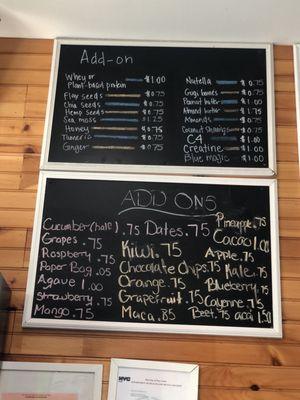 Add-on
Whey or
Plant-based protein $1.00
Flax seeds $0.75
Chia seeds $0.75
Hemp seeds $0.75
Sea moss $1.25
Honey $0.75
Turmeric $0.75
Ginger $0.75
Nutella $0.75
Goji berries $0.75
Peanut butter $1.00
Almond butter $1.75
Almonds $0.75
Coconut Shavings $0.75
C4 $1.00
Creatine $1.00
Blue majic $1.00
ADD ONS
Cucumber (half) 1.75
Grapes .75
Raspberry .75
Paper Bag .05
Agave 1.00
Strawberry .75
Mango .75
Dates .75
Kiwi .75
Chocolate Chips .75
Orange .75
Grapefruit .75
Maca .85
Pineapple .75
Cacao 1.00
Apple .75
Kale .75
Blueberry .75
Cayenne .75
Beet .75 acai 1.50
NYC